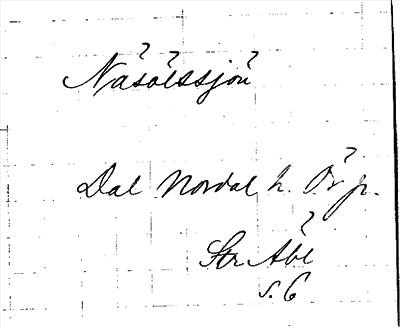 Näsölssjön
Dal Nordal h. Ör p.
Str Åbl
s. 6